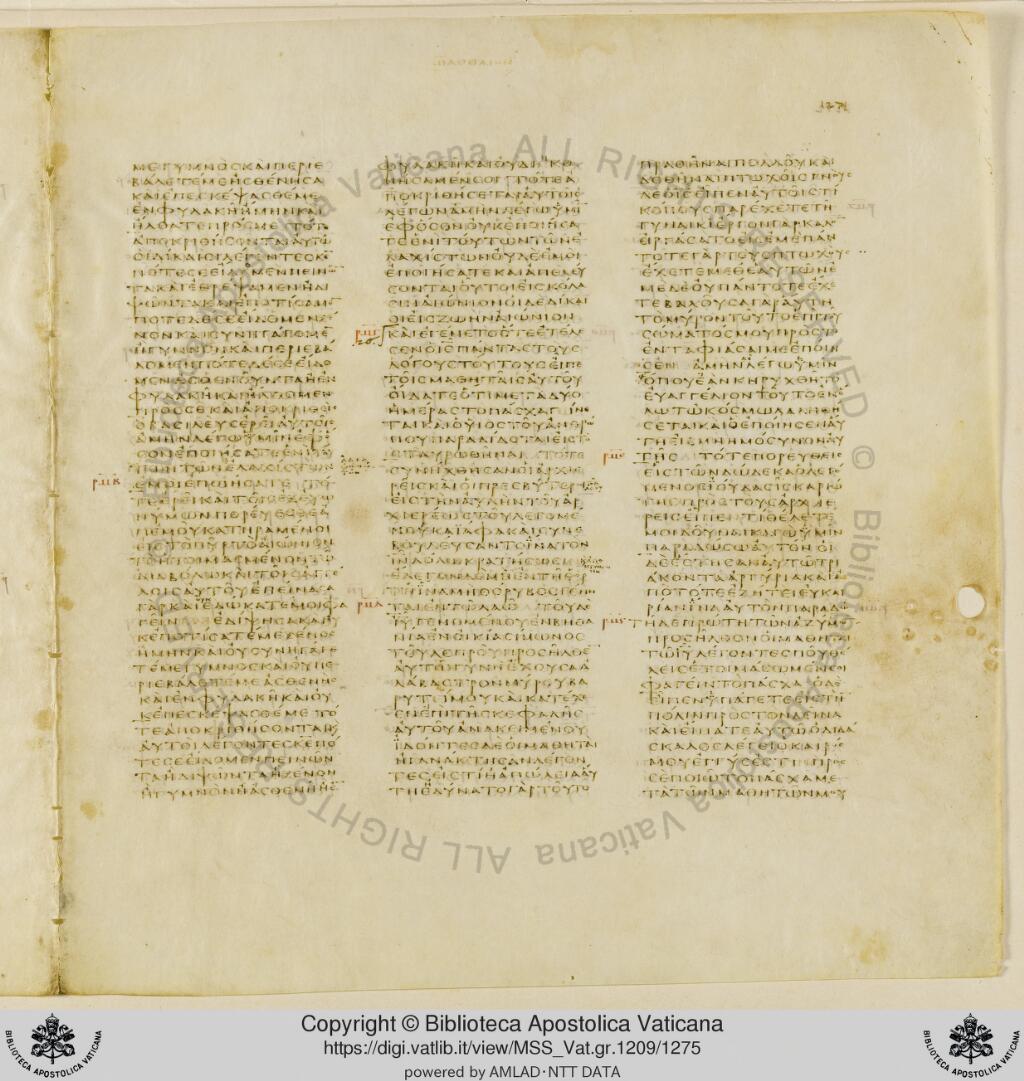 ΜΕΓΥΜΝΟϹΚΑΙΠΕΡΙΕ
ΒΑΛΕΤΕΜΕΗϹΘΕΝΗϹΑ
ΚΑΙΕΠΕϹΚΕΨΑϹΘΕΜΕ
ΕΝΦΥΛΑΚΗΗΜΗΝΚΑΙ
ΗΛΘΑΤΕΠΡΟϹΜΕΤΟΤΕ
ΑΠΟΚΡΙΘΗϹΟΝΤΑΙΑΥΤΩ
ΟΙΔΙΚΑΙΟΙΛΕΓΟΝΤΕϹΚΕ
ΠΟΤΕϹΕΕΙΔΑΜΕΝΠΕΙΝΩ
ΤΑΚΑΙΕΘΡΕΨΑΜΕΝΗΔΙ
ΨΩΝΤΑΚΑΙΕΠΟΤΙϹΑΜΕ
ΠΟΤΕΔΕϹΕΕΙΔΟΜΕΝΞΕ
ΝΟΝΚΑΙϹΥΝΗΓΑΓΟΜΕ
ΗΓΥΜΝΟΝΚΑΙΠΕΡΙΕΒΑ
ΛΟΜΕΝΠΟΤΕΔΕϹΕΕΙΔΟ
ΜΕΝΑϹΘΕΝΟΥΝΤΑΗΕΝ
ΦΥΛΑΚΗΚΑΙΗΛΘΟΜΕΝ
ΠΡΟϹϹΕΚΑΙΑΠΟΚΡΙΘΕΙϹ
ΟΒΑϹΙΛΕΥϹΕΡΕΙΑΥΤΟΙϹ
ΑΜΗΝΛΕΓΩΥΜΙΝΕΦΟ
ϹΟΝΕΠΟΙΗϹΑΤΕΕΝΙΤΟΥ
ΤΩΝΤΩΝΕΛΑΧΙϹΤΩΝ
ΕΜΟΙΕΠΟΙΗϹΑΤΕ ΤΟ
ΤΕΕΡΕΙΚΑΙΤΟΙϹΕΞΕΥΩ
ΝΥΜΩΝΠΟΡΕΥΕϹΘΕΑ
ΠΕΜΟΥΚΑΤΗΡΑΜΕΝΟΙ
ΕΙϹΤΟΠΥΡΤΟΑΙΩΝΙΟΝ
ΤΟΗΤΟΙΜΑϹΜΕΝΟΝΤΩ
ΔΙΑΒΟΛΩΚΑΙΤΟΙϹΑΓΓΕ
ΛΟΙϹΑΥΤΟΥΕΠΕΙΝΑϹΑ
ΓΑΡΚΑΙΟΥΚΕΔΩΚΑΤΕΜΟΙΦΑ
ΓΕΙΝ ΕΔΙΨΗϹΑΚΑΙΟΥ
ΚΕΠΟΤΙϹΑΤΕΜΕΞΕΝΟϹ
ΗΜΗΝΚΑΙΟΥϹΥΝΗΓΑΓΕ
ΤΕΜΕΓΥΜΝΟϹΚΑΙΟΥΠΕ
ΡΙΕΒΑΛΕΤΕΜΕΑϹΘΕΝΗϹ
ΚΑΙΕΝΦΥΛΑΚΗΚΑΙΟΥ
ΚΕΠΕϹΚΕΨΑϹΘΕΜΕΤΟ
ΤΕΑΠΟΚΡΙΘΗϹΟΝΤΑΙ
ΑΥΤΟΙΛΕΓΟΝΤΕϹΚΕΠΟ
ΤΕϹΕΕΙΔΟΜΕΝΠΕΙΝΩΝ
ΤΑΗΔΙΨΩΝΤΑΗΞΕΝΟΝ
ΗΓΥΜΝΟΝΗΑϹΘΕΝΗΗΕ
ΦΥΛΑΚΗΚΑΙΟΥΔΙΗΚΟ
ΝΗϹΑΜΕΝϹΟΙ ΤΟΤΕΑ
ΠΟΚΡΙΘΗϹΕΤΑΙΑΥΤΟΙϹ
ΛΕΓΩΝΑΜΗΝΛΕΓΩΥΜΙ
ΕΦΟϹΟΝΟΥΚΕΠΟΙΗϹΑ
ΤΕΕΝΙΤΟΥΤΩΝΤΩΝΕ
ΛΑΧΙϹΤΩΝΟΥΔΕΕΜΟΙ
ΕΠΟΙΗϹΑΤΕΚΑΙΑΠΕΛΕΥ
ϹΟΝΤΑΙΟΥΤΟΙΕΙϹΚΟΛΑ
ϹΙΝΑΙΩΝΙΟΝΟΙΔΕΔΙΚΑΙ
ΟΙΕΙϹΖΩΗΝΑΙΩΝΙΟΝ
ΚΑΙΕΓΕΝΕΤΟΟΤΕΕΤΕΛΕ
ϹΕΝΟΙϹΠΑΝΤΑϹΤΟΥϹ
ΛΟΓΟΥϹΤΟΥΤΟΥϹΕΙΠΕ
ΤΟΙϹΜΑΘΗΤΑΙϹΑΥΤΟΥ
ΟΙΔΑΤΕΟΤΙΜΕΤΑΔΥΟ
ΗΜΕΡΑϹΤΟΠΑϹΧΑΓΙΝΕ
ΤΑΙΚΑΙΟΥΙΟϹΤΟΥΑΝΘΡΩ
ΠΟΥΠΑΡΑΔΙΔΟΤΑΙΕΙϹΤΟ
ϹΤΑΥΡΩΘΗΝΑΙ ΤΟΤΕ
ϹΥΝΗΧΘΗϹΑΝΟΙΑΡΧΙΕ
ΡΕΙϹΚΑΙΟΙΠΡΕϹΒΥΤΕΡΟΙ
ΕΙϹΤΗΝΑΥΛΗΝΤΟΥΑΡ
ΧΙΕΡΕΩϹΤΟΥΛΕΓΟΜΕ
ΝΟΥΚΑΙΑΦΑΚΑΙϹΥΝΕ
ΒΟΥΛΕΥϹΑΝΤΟΙΝΑΤΟΝ
ΙΝΔΟΛΩΚΡΑΤΗϹΩϹΙΝ
ΕΛΕΓΟΝΔΕΜΗΕΝΤΗΕΟΡ
ΤΗΙΝΑΜΗΘΟΡΥΒΟϹΓΕΝΗ
ΤΑΙΕΝΤΩΛΑΩ ΤΟΥΔΕ
ΙΥΓΕΝΟΜΕΝΟΥΕΝΒΗΘΑ
ΝΙΑΕΝΟΙΚΙΑϹΙΜΩΝΟϹ
ΤΟΥΛΕΠΡΟΥΠΡΟϹΗΛΘΕ
ΑΥΤΩΓΥΝΗΕΧΟΥϹΑΑ
ΛΑΒΑϹΤΡΟΝΜΥΡΟΥΒΑ
ΡΥΤΙΜΟΥΚΑΙΚΑΤΕΧΕ
ϹΝΕΠΙΤΗϹΚΕΦΑΛΗϹ
ΑΥΤΟΥΑΝΑΚΕΙΜΕΝΟΥ
ΙΔΟΝΤΕϹΔΕΟΙΜΑΘΗΤΑΙ
ΗΓΑΝΑΚΤΗϹΑΝΛΕΓΟΝ
ΤΕϹΕΙϹΤΙΗΑΠΩΛΕΙΑΑΥ
ΤΗΕΔΥΝΑΤΟΓΑΡΤΟΥΤΟ
ΠΡΑΘΗΝΑΙΠΟΛΛΟΥΚΑΙ
ΔΟΘΗΝΑΙΠΤΩΧΟΙϹΓΝΟΥϹ
ΔΕΟΙϹΕΙΠΕΝΑΥΤΟΙϹΤΙ
ΚΟΠΟΥϹΠΑΡΕΧΕΤΕΤΗ
ΓΥΝΑΙΚΙΕΡΓΟΝΓΑΡΚΑΛΟ
ΕΙΡΓΑϹΑΤΟΕΙϹΕΜΕΠΑΝ
ΤΟΤΕΓΑΡΤΟΥϹΠΤΩΧΟΥϹ
ΕΧΕΤΕΜΕΘΕΑΥΤΩΝΕ
ΜΕΔΕΟΥΠΑΝΤΟΤΕΕΧΕ
ΤΕΒΑΛΟΥϹΑΓΑΡΑΥΤΗ
ΤΟΜΥΡΟΝΤΟΥΤΟΕΠΙΤΟΥ
ϹΩΜΑΤΟϹΜΟΥΠΡΟϹΤΟ
ΕΝΤΑΦΙΑϹΑΙΜΕΕΠΟΙΗ
ϹΕΝ ΑΜΗΝΛΕΓΩΥΜΙΝ
ΟΠΟΥΕΑΝΚΗΡΥΧΘΗΤΟ
ΕΥΑΓΓΕΛΙΟΝΤΟΥΤΟΕΝΟ
ΛΩΤΩΚΟϹΜΩΛΑΛΗΘΗ
ϹΕΤΑΙΚΑΙΟΕΠΟΙΗϹΕΝΑΥ
ΤΗΕΙϹΜΝΗΜΟϹΥΝΟΝΑΥ
ΤΗϹ ΤΟΤΕΠΟΡΕΥΘΕΙϹ
ΕΙϹΤΩΝΔΩΔΕΚΑΟΛΕΓΟ
ΜΕΝΟϹΙΟΥΔΑϹΙϹΚΑΡΙΩ
ΤΗϹΠΡΟϹΤΟΥϹΑΡΧΙΕ
ΡΕΙϹΕΙΠΕΝΤΙΘΕΛΕΤΕ
ΜΟΙΔΟΥΝΑΙΚΑΓΩΥΜΙΝ
ΠΑΡΑΔΩϹΩΑΥΤΟΝΟΙ
ΔΕΕϹΤΗϹΑΝΑΥΤΩΤΡΙ
ΑΚΟΝΤΑΑΡΓΥΡΙΑΚΑΙΑ
ΠΟΤΟΤΕΕΖΗΤΕΙΕΥΚΑΙ
ΡΙΑΝΙΝΑΑΥΤΟΝΠΑΡΑΔΩ
ΤΗΔΕΠΡΩΤΗΤΩΝΑΖΥΜΩ
ΠΡΟϹΗΛΘΟΝΟΙΜΑΘΗΤΑΙ
ΤΩΙΥΛΕΓΟΝΤΕϹΠΟΥΘΕ
ΛΕΙϹΕΤΟΙΜΑϹΩΜΕΝϹΟΙ
ΦΑΓΕΙΝΤΟΠΑϹΧΑ ΟΔΕ
ΕΙΠΕΝΥΠΑΓΕΤΕΕΙϹΤΗ
ΠΟΛΙΝΠΡΟϹΤΟΝΔΕΙΝΑ
ΚΑΙΕΙΠΑΤΕΑΥΤΩΟΔΙΔΑ
ϹΚΑΛΟϹΛΕΓΕΙΟΚΑΙΡΟϹ
ΜΟΥΕΓΓΥϹΕϹΤΙΝΠΡΟϹ
ϹΕΠΟΙΩΤΟΠΑϹΧΑΜΕ
ΤΑΤΩΝΜΑΘΗΤΩΝΜΟΥ
Copyright © Biblioteca Apostolica Vaticana
https://digi.vatlib.it/view/MSS_Vat.gr.1209/1275
powered by AMLAD·NTT DATA